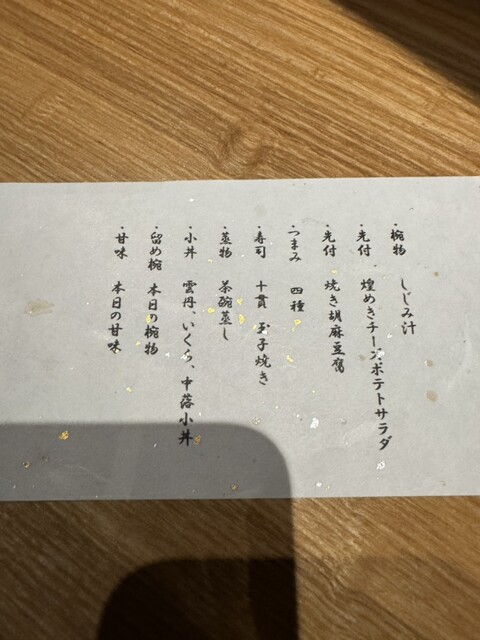 ・椀物 しじみ汁
・先付 煌めきチーズポテトサラダ
・先付 焼き胡麻豆腐
・つまみ 四種
・寿司 十貫 玉子焼き
・蒸物 茶碗蒸し
・小丼 雲丹、いくら、中落小丼
・留め椀 本日の椀物
・甘味 本日の甘味